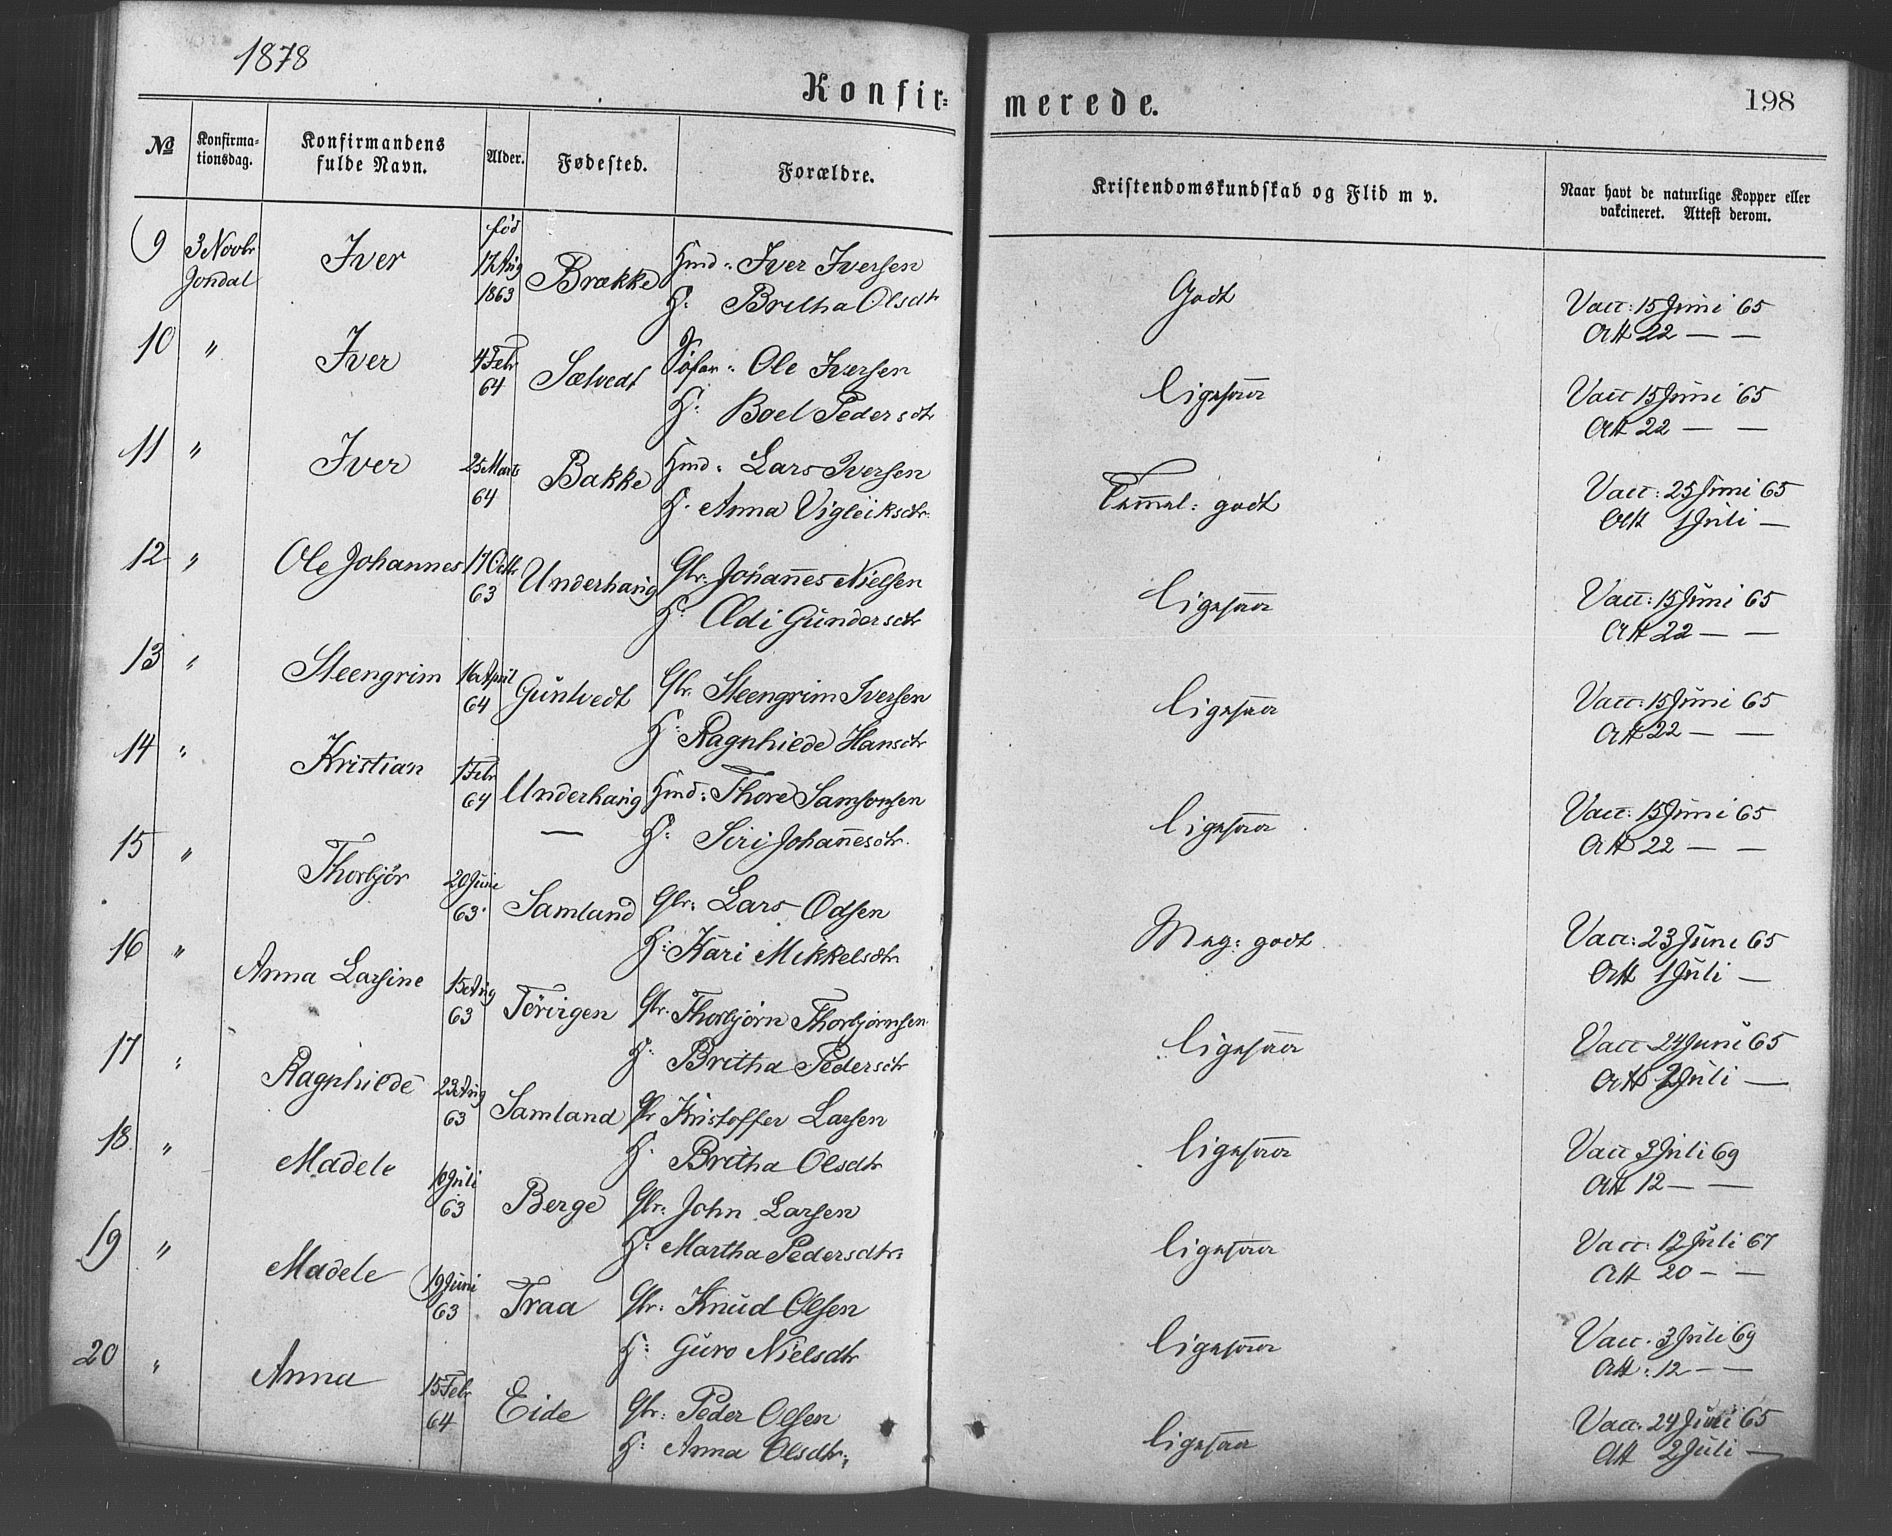 1878
Konfir=
merede.
198
No Konfirma-tionsdag. Konfirmandens fulde Navn. Alder. Fødested. Forældre. Kristendomskundskab og Flid m v. Naar havt de naturlige Kopper eller vakcineret. Attest derom.
9 3 Novbr Jondal Iver fød 17 Aug 1863 Brække Hmd: Iver Iversen Godt Vacc: 15 Juni 65
H: Britha Olsdtr Att 22 — —
10 " Iver 4 Febr 64 Sælvedt Ole Iversen ligesaa Vacc 15 Juni 65
H: Boel Pedersdtr Att 22 — —
11 " Iver 25 Marts 64 Bakke Hmd: Lars Iversen Temmel: godt Vacc: 25 Juni 65
H. Anna Vigleiksdtr. Att 1 Juli —
12 " Ole Johannes 17 Octbr 63 Underhaug Gbr: Johannes Nielsen ligesaa Vacc: 15 Juni 65
H: Aldi Gundersdtr Att 22 — —
13 " Steengrim 16 April 64 Guntvedt Gbr. Steengrim Iversen ligesaa Vacc: 15 Juni 65
H: Ragnhilde Hansdtr Att 22 — —
14 " Kristian 1 Febr 64 Underhaug Hmd: Thore Samsonsen ligesaa Vacc: 15 Juni 65
— H: Siri Johannesdtr. Att 22 — —
15 " Thorbjør 20 Juni 63 Samland Gbr: Lars Odsen Meg: godt Vacc: 23 Juni 65
H: Kari Mikkelsdtr Att 1 Juli —
16 " Anna Larsine 15 Aug 63 Torvigen Gbr. Thorbjørn Thorbjørnsen ligesaa Vacc 24 Juni 65
H: Britha Pedersdtr Att 2 Juli —
17 " Ragnhilde 23 Aug 63 Samland Gbr Kristoffer Larsen ligesaa Vacc 3 Juli 69
H. Britha Olsdtr Att 12 — —
18 " Madele 10 Juli 63 Berge Gbr: John Larsen ligesaa Vacc: 12 Juli 67
H: Martha Pedersdtr: Att 20 — —
19 " Madele 19 Juni 63 Traa Gbr: Knud Olsen ligesaa Vacc. 3 Juli 69
H: Guro Nielsdtr Att: 12 — —
20 " Anna 15 Febr 64 Eide Gbr: Peder Olsen ligesaa Vacc. 24 Juni 65
H: Anna Olsdtr; Att 2 Juli —